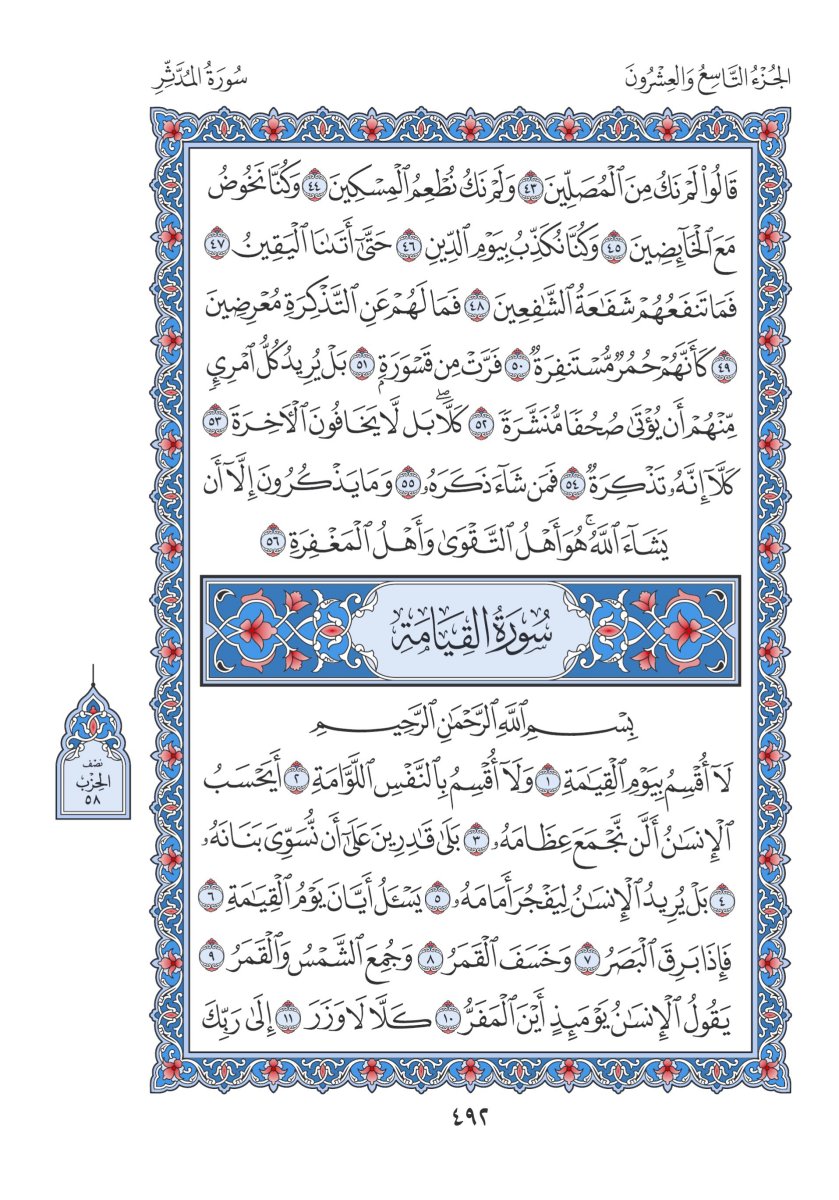 الجُزْءُ التَّاسِعُ وَالعِشْرُونَ
سُورَةُ المُدَّثِّرِ
قَالُواْ لَمْ نَكُ مِنَ ٱلْمُصَلِّينَ ٤٣ وَلَمْ نَكُ نُطْعِمُ ٱلْمِسْكِينَ ٤٤ وَكُنَّا نَخُوضُ
مَعَ ٱلْخَآئِضِينَ ٤٥ وَكُنَّا نُكَذِّبُ بِيَوْمِ ٱلدِّينِ ٤٦ حَتَّىٰٓ أَتَىٰنَا ٱلْيَقِينُ ٤٧
فَمَا تَنفَعُهُمْ شَفَٰعَةُ ٱلشَّٰفِعِينَ ٤٨ فَمَا لَهُمْ عَنِ ٱلتَّذْكِرَةِ مُعْرِضِينَ
٤٩ كَأَنَّهُمْ حُمُرٌ مُّسْتَنفِرَةٌ ٥٠ فَرَّتْ مِن قَسْوَرَةِۭ ٥١ بَلْ يُرِيدُ كُلُّ ٱمْرِيٕٖ
مِّنْهُمْ أَن يُؤْتَىٰ صُحُفًا مُّنَشَّرَةً ٥٢ كَلَّاۖ بَل لَّا يَخَافُونَ ٱلْأَخِرَةَ ٥٣
كَلَّآ إِنَّهُۥ تَذْكِرَةٌ ٥٤ فَمَن شَآءَ ذَكَرَهُۥ ٥٥ وَمَا يَذْكُرُونَ إِلَّآ أَن
يَشَآءَ ٱللَّهُۚ هُوَ أَهْلُ ٱلتَّقْوَىٰ وَأَهْلُ ٱلْمَغْفِرَةِ ٥٦
سُورَةُ القِيَامَةِ
بِسْمِ ٱللَّهِ ٱلرَّحْمَٰنِ ٱلرَّحِيمِ
لَآ أُقْسِمُ بِيَوْمِ ٱلْقِيَٰمَةِ ١ وَلَآ أُقْسِمُ بِٱلنَّفْسِ ٱللَّوَّامَةِ ٢ أَيَحْسَبُ
ٱلْإِنسَٰنُ أَلَّن نَّجْمَعَ عِظَامَهُۥ ٣ بَلَىٰ قَٰدِرِينَ عَلَىٰٓ أَن نُّسَوِّيَ بَنَانَهُۥ
٤ بَلْ يُرِيدُ ٱلْإِنسَٰنُ لِيَفْجُرَ أَمَامَهُۥ ٥ يَسْـَٔلُ أَيَّانَ يَوْمُ ٱلْقِيَٰمَةِ ٦
فَإِذَا بَرِقَ ٱلْبَصَرُ ٧ وَخَسَفَ ٱلْقَمَرُ ٨ وَجُمِعَ ٱلشَّمْسُ وَٱلْقَمَرُ ٩
يَقُولُ ٱلْإِنسَٰنُ يَوْمَئِذٍ أَيْنَ ٱلْمَفَرُّ ١٠ كَلَّا لَا وَزَرَ ١١ إِلَىٰ رَبِّكَ
نصْف
الحِزْب
٥٨
٤٩٢